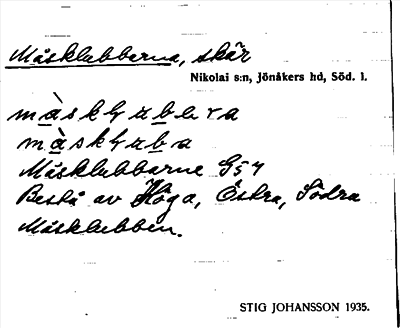 Måsklubberna, skär
Nikolai s:n, Jönåkers hd, Söd. l.
Måsklubbarne G54
Bestå av Höga, Östra, Södra
Måsklubben.
STIG JOHANSSON 1935.